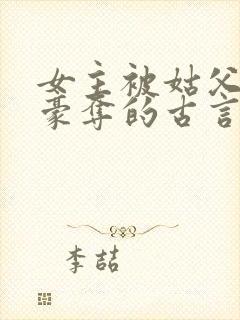 女主被姑父
豪夺的古言
李喆